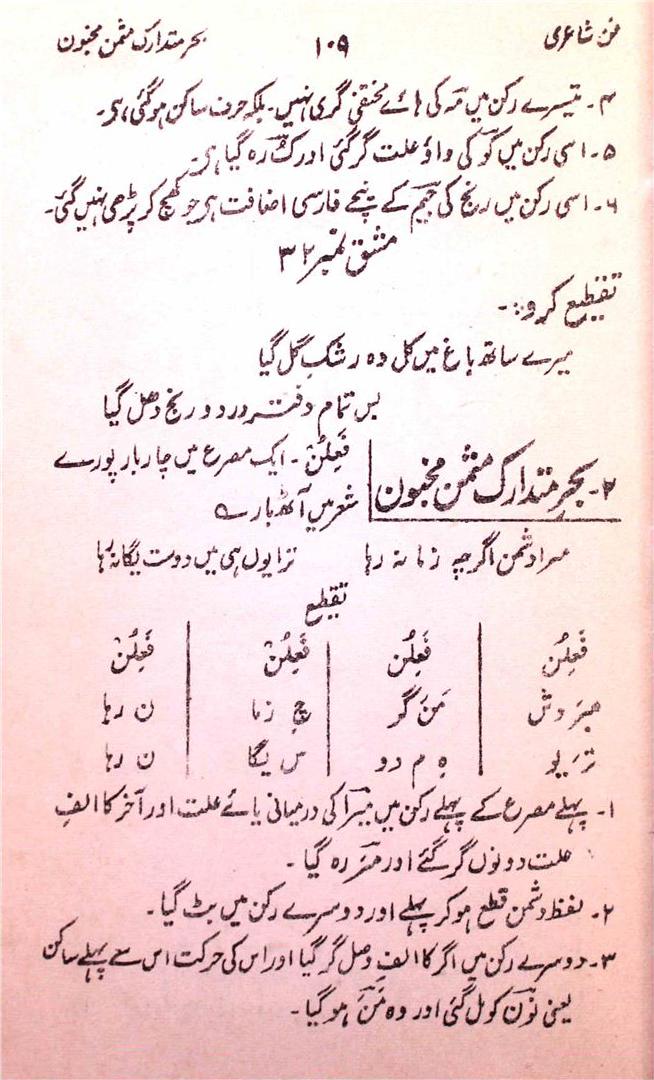 فن شاعری ۱۰۹ بحر متدارک مثمن مخبون
۴۔ تیسرے رکن میں مہ کی ہائے مختفی گری نہیں۔ بلکہ حرف ساکن ہو گئی، ہی۔
۵۔ اسی رکن میں کو کی واؤ علت گر گئی اور ک رہ گیا ہی۔
۶۔ اسی رکن میں رنج کی جیم کے نیچے فارسی اضافت ہی جو کھینچ کر پڑھی نہیں گئی۔
مشق نمبر ۳۲
تقطیع کرو:۔
میرے ساتھ باغ میں کل وہ رشکِ گل گیا
بس تمام دفترِ درد و رنج دھل گیا
۲۔ بحرِ متدارک مثمن مخبون
فَعِلُنْ۔ ایک مصرع میں چار بار پورے
شعر میں آٹھ بار ہے
مرا دشمن اگرچہ زمانہ رہا ترا یوں ہی میں دوست یگانہ رہا
تقطیع
فَعِلُنْ فَعِلُنْ فَعِلُنْ فَعِلُنْ
مِرَ دش مَنَ گر چِ زما نَ رہا
تِرَ یو ہِ مِ دو سِ یگا نَ رہا
۱۔ پہلے مصرع کے پہلے رکن میں میرا کی درمیانی یائے علت اور آخر کا الفِ
علت دونوں گر گئے اور مِرَ رہ گیا۔
۲۔ لفظ دشمن قطع ہو کر پہلے اور دوسرے رکن میں بٹ گیا۔
۳۔ دوسرے رکن میں اگر کا الف وصل گر گیا اور اس کی حرکت اس سے پہلے ساکن
یعنی نون کو مل گئی اور وہ مَنَ ہو گیا۔